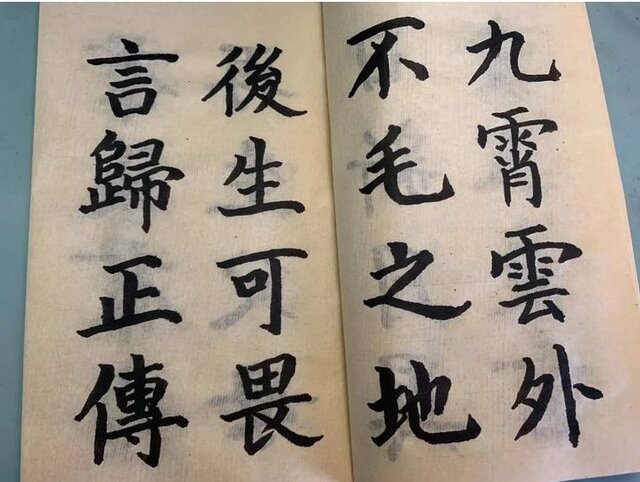 九霄雲外
不毛之地
後生可畏
言歸正傳